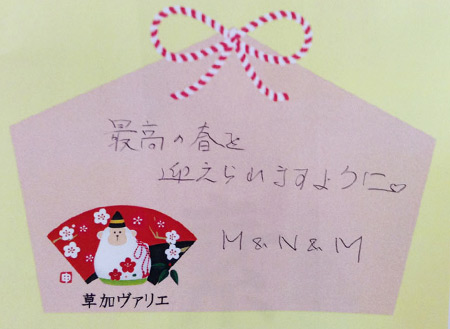 最高の春を
迎えられますように♡
M & N & M
申
草加ヴァリエ